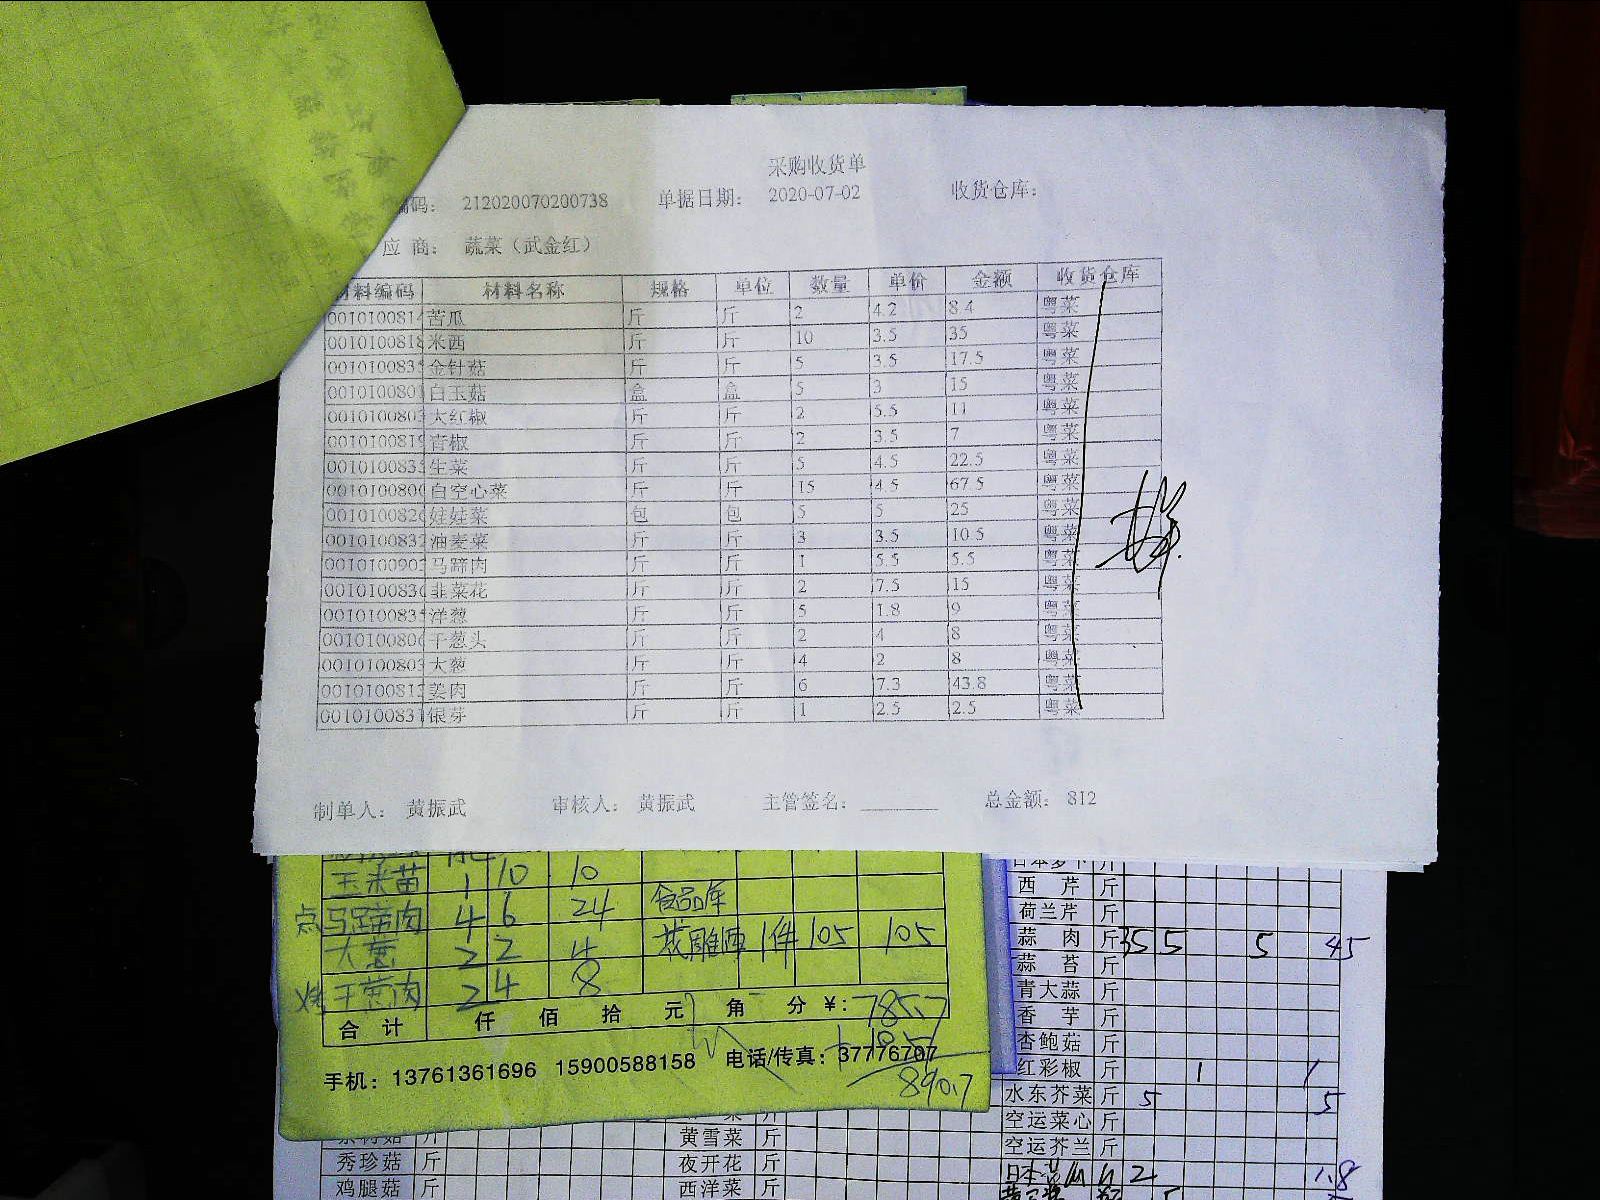 采购收货单
编码： 212020070200738 单据日期： 2020-07-02 收货仓库：
应 商： 蔬菜（武金红）
材料编码 材料名称 规格 单位 数量 单价 金额 收货仓库
0010100814 苦瓜 斤 斤 2 4.2 8.4 粤菜
0010100818 米西 斤 斤 10 3.5 35 粤菜
001010083 金针菇 斤 斤 5 3.5 17.5 粤菜
001010080 白玉菇 盒 盒 5 3 15 粤菜
001010080 大红椒 斤 斤 2 5.5 11 粤菜
0010100819 青椒 斤 斤 2 3.5 7 粤菜
001010083 生菜 斤 斤 5 4.5 22.5 粤菜
001010080 白空心菜 斤 斤 15 4.5 67.5 粤菜
001010082 娃娃菜 包 包 5 5 25 粤菜
001010083 油麦菜 斤 斤 3 3.5 10.5 粤菜
001010090 马蹄肉 斤 斤 1 5.5 5.5 粤菜
001010083 韭菜花 斤 斤 2 7.5 15 粤菜
001010083 洋葱 斤 斤 5 1.8 9 粤菜
001010080 干葱头 斤 斤 2 4 8 粤菜
001010080 大葱 斤 斤 4 2 8 粤菜
001010081 姜肉 斤 斤 6 7.3 43.8 粤菜
001010083 银芽 斤 斤 1 2.5 2.5 粤菜
制单人： 黄振武 审核人： 黄振武 主管签名： 总金额： 812
玉米苗 1 10 10
点马蹄肉 4 6 24 食品库
大葱 2 2 4 花雕酒 1件 105 105
干葱肉 2 4 8
合 计 仟 佰 拾 元 角 分 ¥: 785.7
手机：13761361696 15900588158 电话/传真：37776707
890.7
西 芹 斤
荷兰芹 斤
蒜 肉 斤 35 5 5 45
蒜 苔 斤
青大蒜 斤
香 芋 斤
杏鲍菇 斤
红彩椒 斤 1 1
水东芥菜 斤 5 5
空运菜心 斤
空运芥兰 斤
黄雪菜 斤
秀珍菇 斤 夜开花 斤
鸡腿菇 斤 西洋菜 斤